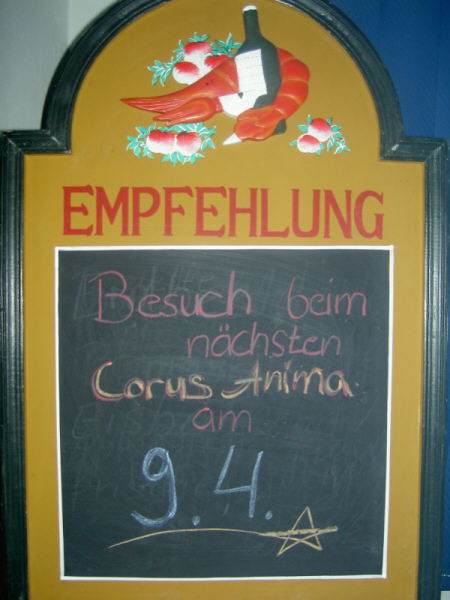 EMPFEHLUNG
Besuch beim
nächsten
Corus Anima
am
9.4.